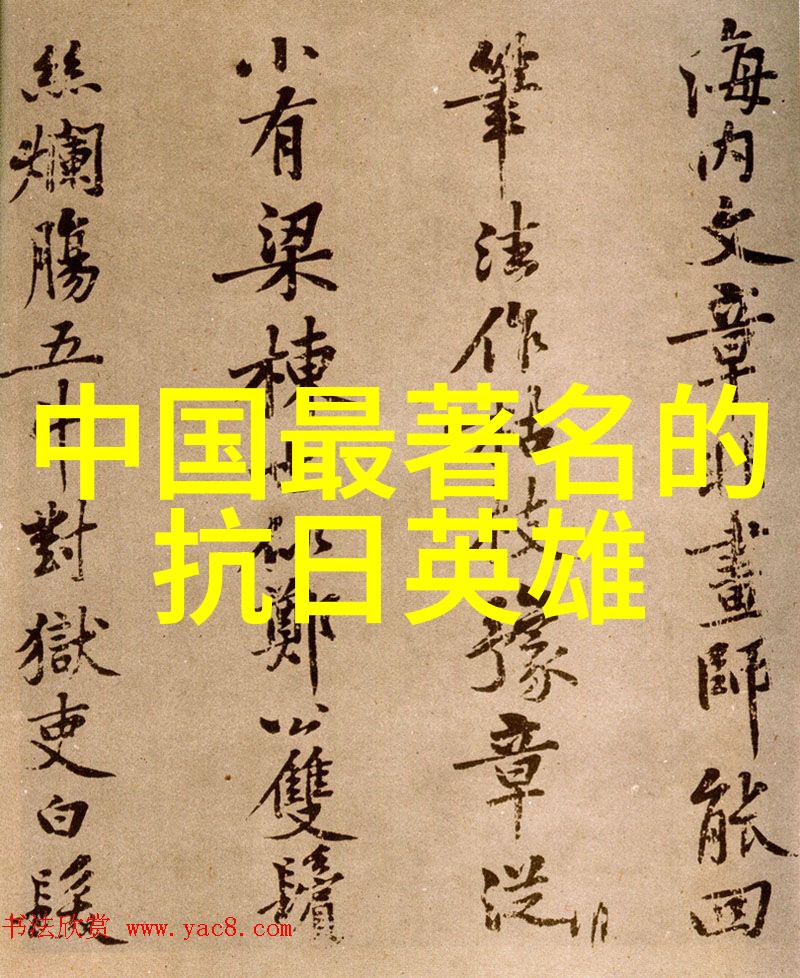 海内文章畫師能回
筆法作枯枝豫章從
小有梁棟也似鄭公雙鬢
絲爛腸五斗對獄吏白髮
中国最著名的
抗日英雄
书法欣赏 www.yac8.com